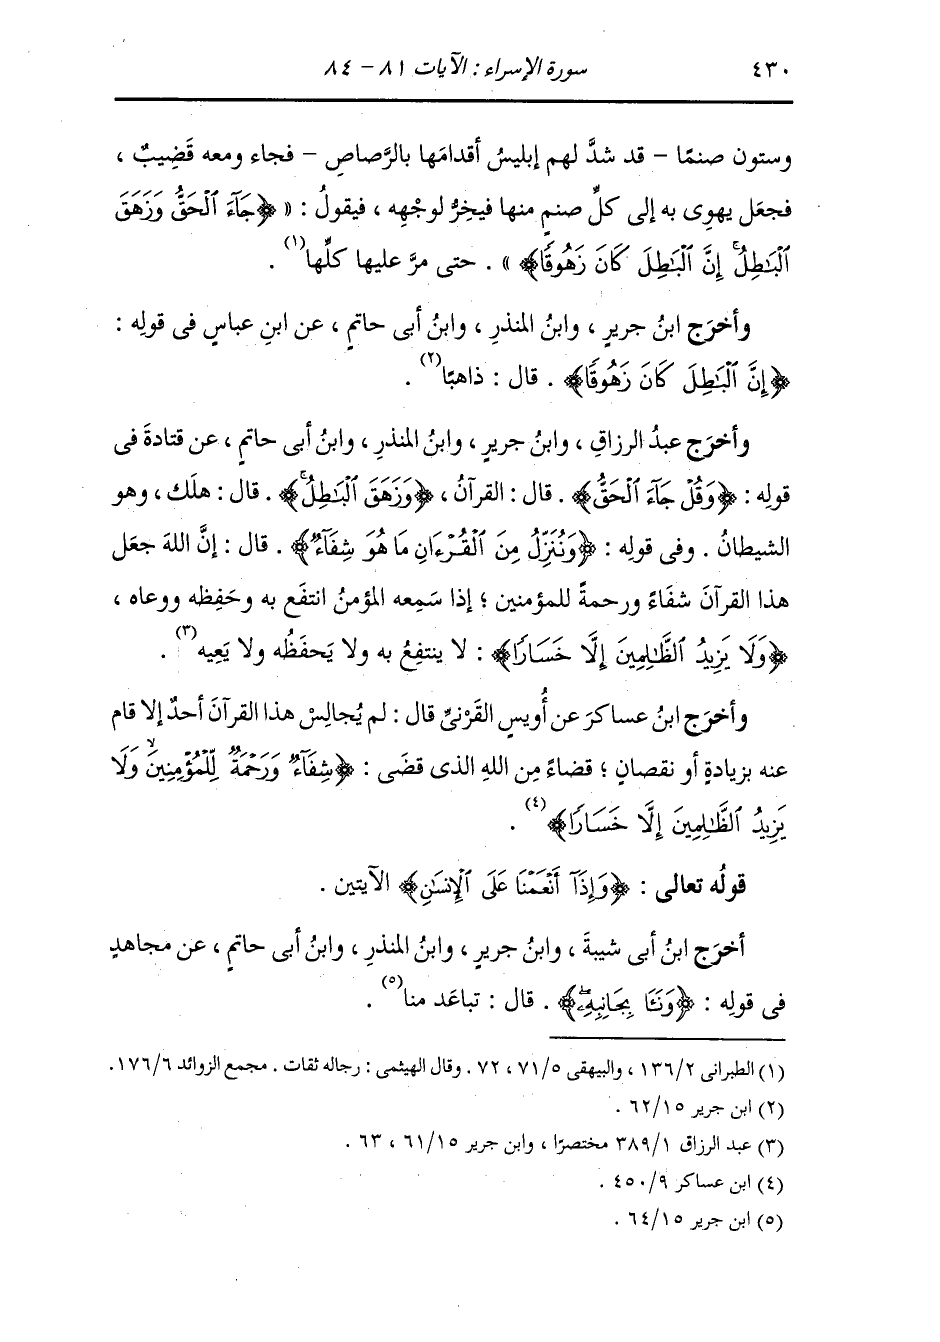 ٤٣٠ سورة الإسراء : الآيات ٨١ - ٨٤
وستون صنمًا - قد شدَّ لهم إبليسُ أقدامَها بالرَّصاصِ - فجاء ومعه قَضِيبٌ ،
فجعَل يهوِى به إلى كلِّ صنمٍ منها فيخِرُّ لوجْهِه ، فيقولُ : « ﴿جَآءَ ٱلْحَقُّ وَزَهَقَ
ٱلْبَٰطِلُ ۚ إِنَّ ٱلْبَٰطِلَ كَانَ زَهُوقًا﴾ » . حتى مرَّ عليها كلِّها(١) .
وأخرَج ابنُ جريرٍ ، وابنُ المنذرِ ، وابنُ أبى حاتمٍ ، عن ابنِ عباسٍ فى قولِه :
﴿إِنَّ ٱلْبَٰطِلَ كَانَ زَهُوقًا﴾ . قال : ذاهبًا(٢) .
وأخرَج عبدُ الرزاقِ ، وابنُ جريرٍ ، وابنُ المنذرِ ، وابنُ أبى حاتمٍ ، عن قتادةَ فى
قولِه : ﴿وَقُلْ جَآءَ ٱلْحَقُّ﴾ . قال : القرآنُ ، ﴿وَزَهَقَ ٱلْبَٰطِلُ ۚ﴾ . قال : هلَك ، وهو
الشيطانُ . وفى قولِه : ﴿وَنُنَزِّلُ مِنَ ٱلْقُرْءَانِ مَا هُوَ شِفَآءٌ﴾ . قال : إنَّ اللهَ جعَل
هذا القرآنَ شفاءً ورحمةً للمؤمنين ؛ إذا سَمِعه المؤمنُ انتفَع به وحَفِظه ووعاه ،
﴿وَلَا يَزِيدُ ٱلظَّٰلِمِينَ إِلَّا خَسَارًا﴾ : لا ينتفِعُ به ولا يَحفَظُه ولا يَعِيه(٣) .
وأخرَج ابنُ عساكرَ عن أُويسٍ القَرْنىِّ قال : لم يُجالِسْ هذا القرآنَ أحدٌ إلا قام
عنه بزيادةٍ أو نقصانٍ ؛ قضاءً مِن اللهِ الذى قضَى : ﴿شِفَآءٌ وَرَحْمَةٌ لِّلْمُؤْمِنِينَ ۙ وَلَا
يَزِيدُ ٱلظَّٰلِمِينَ إِلَّا خَسَارًا﴾(٤) .
قولُه تعالى : ﴿وَإِذَآ أَنْعَمْنَا عَلَى ٱلْإِنسَٰنِ﴾ الآيتين .
أخرَج ابنُ أبى شيبةَ ، وابنُ جريرٍ ، وابنُ المنذرِ ، وابنُ أبى حاتمٍ ، عن مجاهدٍ
فى قولِه : ﴿وَنَـَٔا بِجَانِبِهِۦ ۖ﴾ . قال : تباعَد منا(٥) .
(١) الطبرانى ١٣٦/٢ ، والبيهقى ٧١/٥ ، ٧٢ . وقال الهيثمى : رجاله ثقات . مجمع الزوائد ١٧٦/٦ .
(٢) ابن جرير ٦٢/١٥ .
(٣) عبد الرزاق ٣٨٩/١ مختصرًا ، وابن جرير ٦١/١٥ ، ٦٣ .
(٤) ابن عساكر ٤٥٠/٩ .
(٥) ابن جرير ٦٤/١٥ .